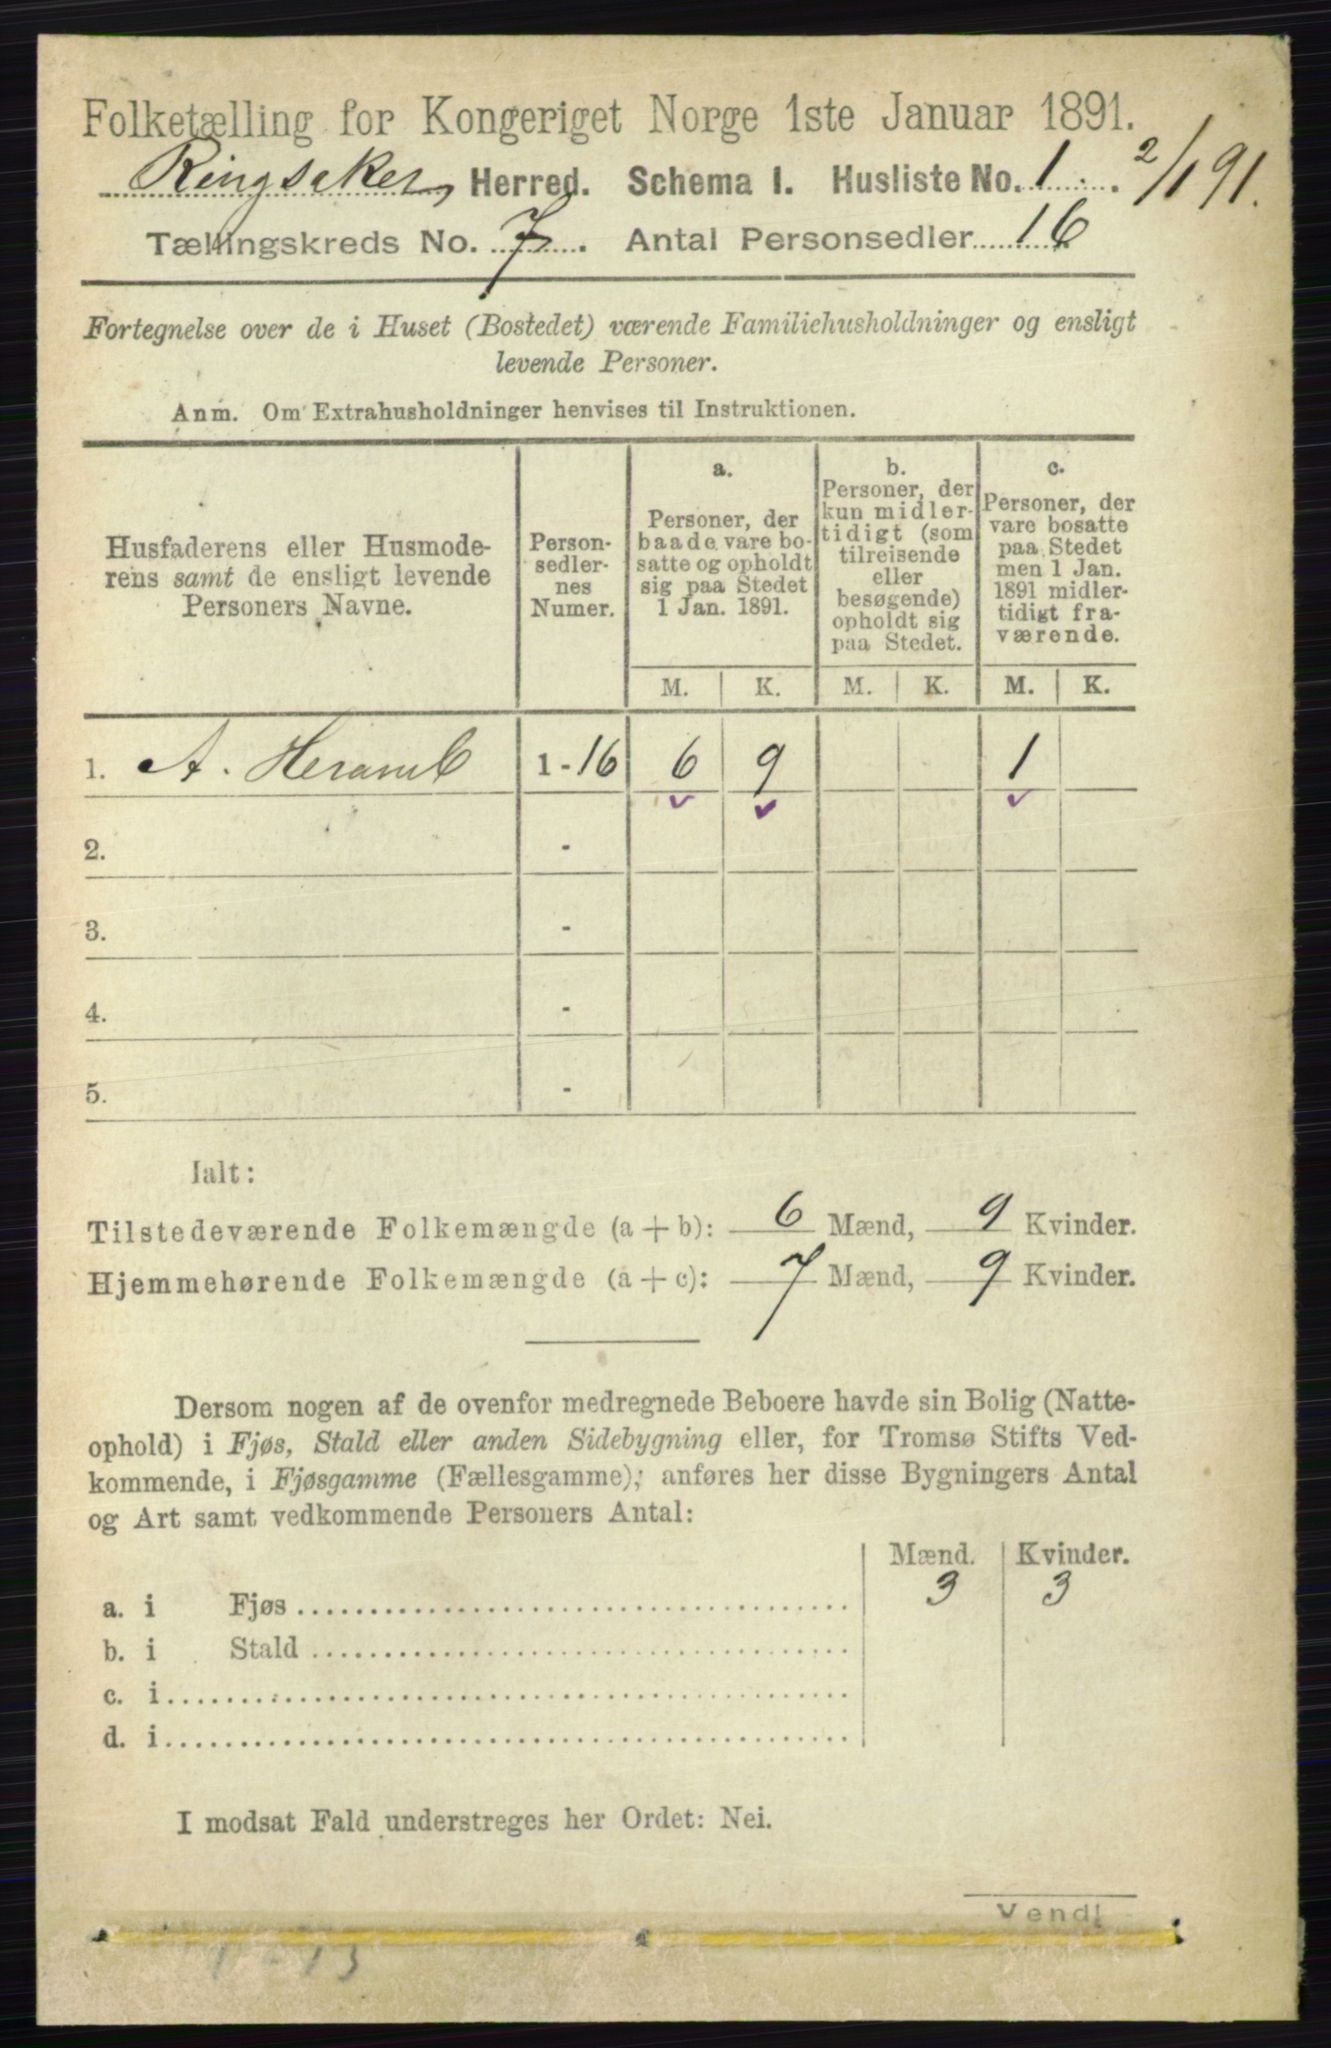 Folketælling for Kongeriget Norge 1ste Januar 1891.
Ringsaker Herred. Schema I. Husliste No. 1. 2/1 91.
Tællingskreds No. 7. Antal Personsedler 16
Fortegnelse over de i Huset (Bostedet) værende Familiehusholdninger og ensligt
levende Personer.
Anm. Om Extrahusholdninger henvises til Instruktionen.
Husfaderens eller Husmode-
rens samt de ensligt levende
Personers Navne.
Person-
sedler-
nes
Numer.
a.
Personer, der
baade vare bo-
satte og opholdt
sig paa Stedet
1 Jan. 1891.
b.
Personer, der
kun midler-
tidigt (som
tilreisende
eller
besøgende)
opholdt sig
paa Stedet.
c.
Personer, der
vare bosatte
paa Stedet
men 1 Jan.
1891 midler-
tidigt fra-
værende.
M. K. M. K. M. K.
1. A. Heramb 1-16 6 9 1
2. -
3. -
4. -
5. -
Ialt:
Tilstedeværende Folkemængde (a + b): 6 Mænd, 9 Kvinder.
Hjemmehørende Folkemængde (a + c): 7 Mænd, 9 Kvinder.
Dersom nogen af de ovenfor medregnede Beboere havde sin Bolig (Natte-
ophold) i Fjøs, Stald eller anden Sidebygning eller, for Tromsø Stifts Ved-
kommende, i Fjøsgamme (Fællesgamme); anføres her disse Bygningers Antal
og Art samt vedkommende Personers Antal:
Mænd. Kvinder.
a. i Fjøs 3 3
b. i Stald
c. i
d. i
I modsat Fald understreges her Ordet: Nei.
Vend!
1-13